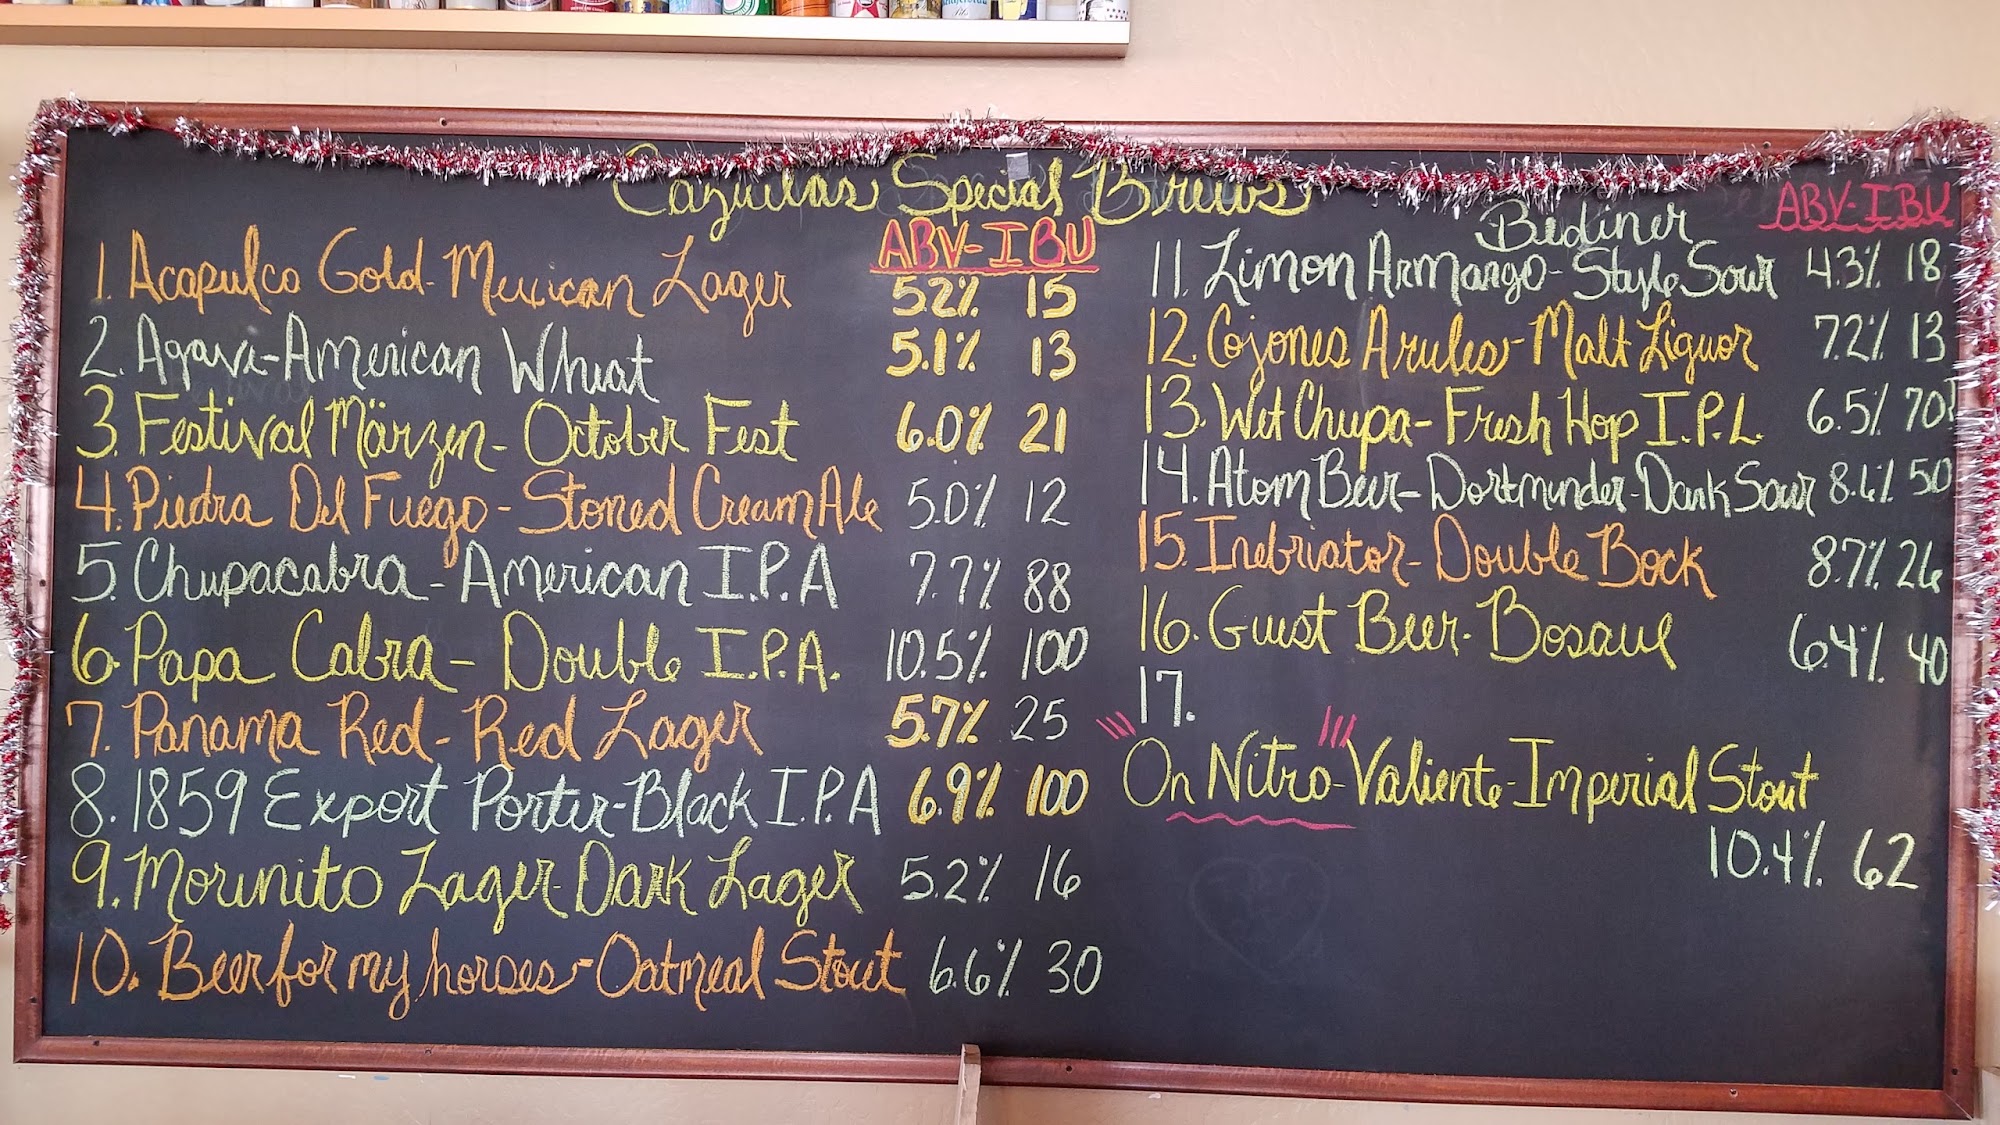 Cazuelas Special Brews
ABV-IBU
1. Acapulco Gold-Mexican Lager 5.2% 15
2. Agave-American Wheat 5.1% 13
3. Festival Märzen-October Fest 6.0% 21
4. Piedra Del Fuego-Stoned Cream Ale 5.0% 12
5. Chupacabra-American I.P.A 7.7% 88
6. Papa Cabra-Double I.P.A. 10.5% 100
7. Panama Red-Red Lager 5.7% 25
8. 1859 Export Porter-Black I.P.A 6.9% 100
9. Morenito Lager-Dark Lager 5.2% 16
10. Beer for my horses-Oatmeal Stout 6.6% 30
ABV-IBU
Berliner
11. Limon Armargo-Style Sour 4.3% 18
12. Cojones Azules-Malt Liquor 7.2% 13
13. Wet Chupa-Fresh Hop I.P.L. 6.5% 70
14. Atom Beer-Dortmunder-Dark Sour 50
15. Inebriator-Double Bock 8.7% 26
16. Guest Beer-Bosque 6.4% 40
17.
On Nitro-Valiente-Imperial Stout
10.4% 62